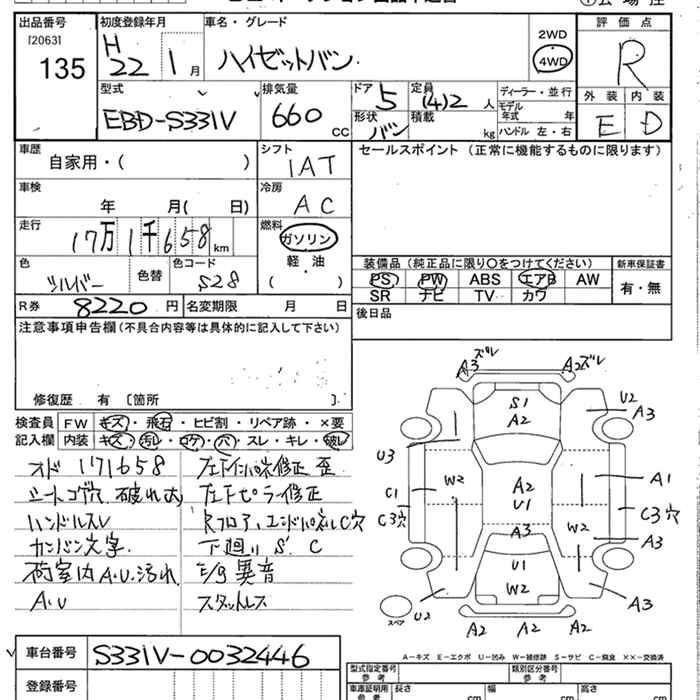 出品番号 初度登録年月 車名・グレード 評価点
[2063] 2WD
135 H22 1月 ハイゼットバン 4WD R
型式 排気量 ドア 5 定員 (4)2人 ディーラー・並行 外装 内装
モデル年式 年
EBD-S331V 660 CC 形状 バン 積載 kg ハンドル 左・右 E D
車歴 シフト セールスポイント (正常に機能するものに限ります)
自家用・( ) IAT
車検 冷房
年 月( 日) AC
走行 燃料
17万1千658km ガソリン
色 色コード 軽・油 装備品 (純正品に限り○をつけてください) 新車保証書
シルバー 色替 S28 ( ) PS PW ABS エアB AW 有・無
SR ナビ TV カワ
R券 8220円 名変期限 月 日 後日品
注意事項申告欄(不具合内容等は具体的に記入して下さい)
修復歴 有 [箇所 ]
検査員 FW キズ・飛石・ヒビ割・リペア跡・×要
記入欄 内装 キズ・汚れ・コゲ・穴・スレ・キレ・破レ
オド 171658 左下インパネ修正 歪
シートコゲ穴、破れ大 左下ピラー修正
ハンドルスレ Rフロア、エンドパネルC穴
カンバン文字 下廻り S、C
荷室内A.U.汚れ E/g 異音
A.U スタットレス
A3 ズレ A2 ズレ
S1 U2
A2 A3
U3
W2 A1
C1 A2
C3穴 U1 C3穴
A3 W2 A3
U1
W2 A3
スペア U2 A2 A2
A=キズ E=エクボ U=凹み W=補修跡 S=サビ C=腐食 ××=交換済
車台番号 S331V-0032446
型式指定番号 参考 類別区分番号 参考
登録番号 車庫証明用 参考 長さ cm 幅 cm 高さ cm